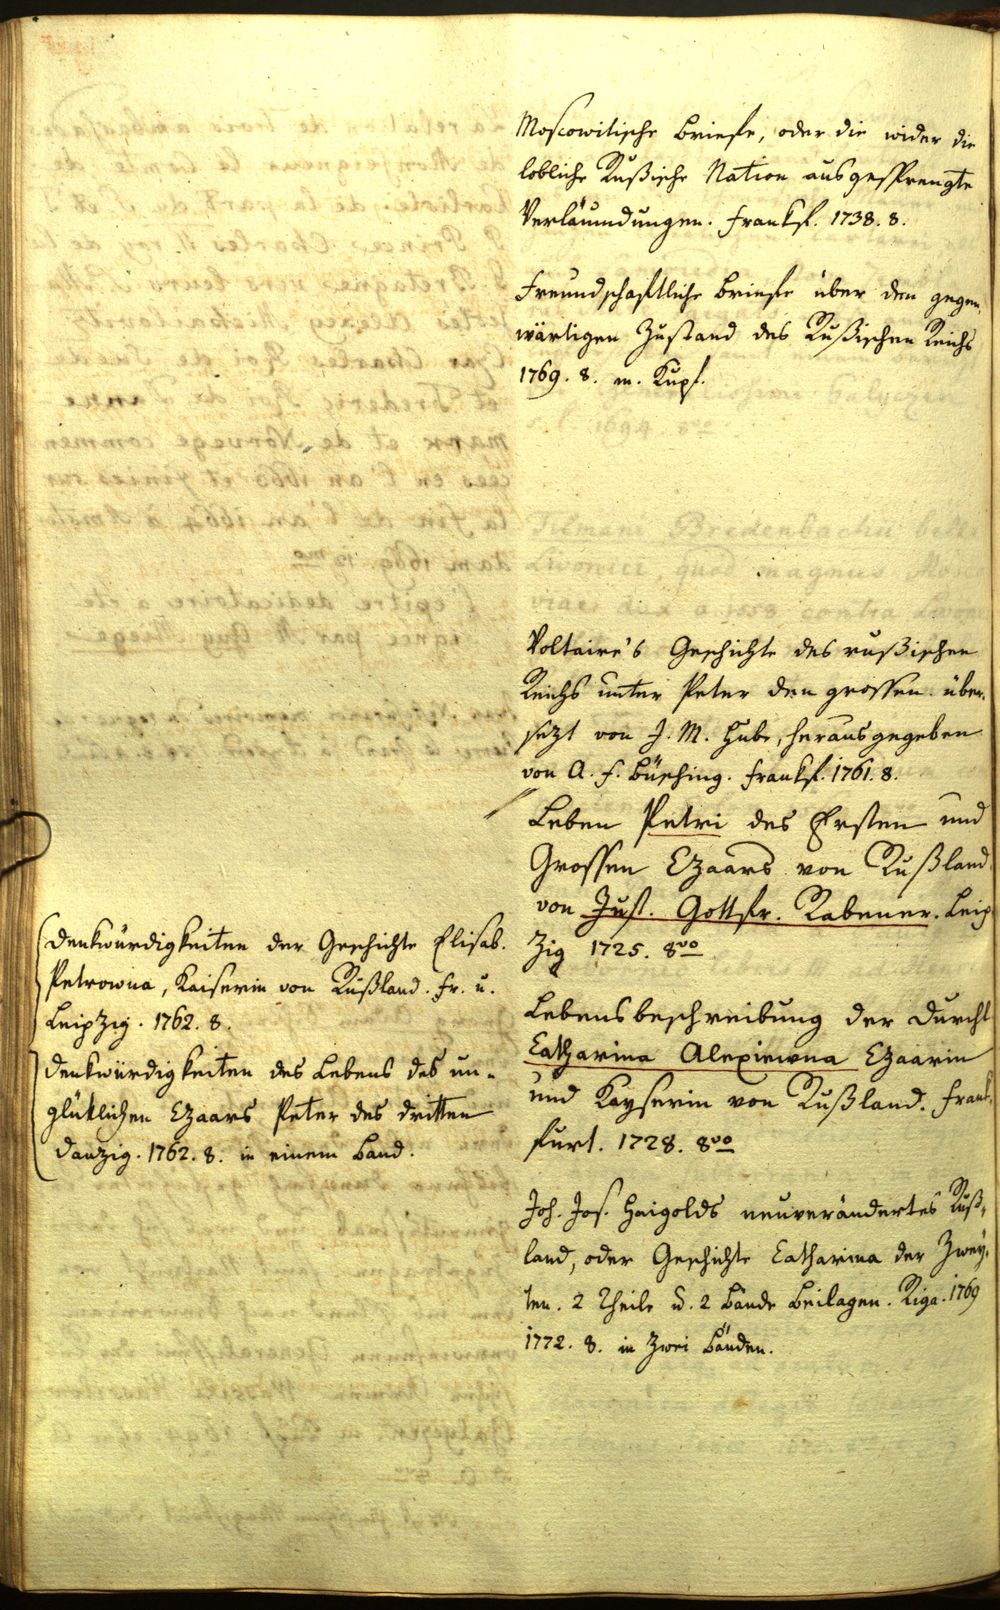 Moscowitische Briefe, oder die wider die
lobliche Rußische Nation ausgesprengte
Verläumdungen. Frankf. 1738. 8.
Freundschaftliche Briefe über den gegen-
wärtigen Zustand des Rußischen Reichs
1769. 8. m. Kupf.
Voltaire's Geschichte des rußischen
Reichs unter Peter den grossen. über-
sezt von J. M. Hube, herausgegeben
von A. F. Büsching. Frankf. 1761. 8.
Leben Petri des Ersten und
Grossen Czaars von Rußland
von Just. Gottfr. Rabener. Leip
zig 1725. 8vo
Lebensbeschreibung der Durchl
Catharina Alexiewna Czaarin
und Kayserin von Rußland. Frank-
furt. 1728. 8vo
Joh. Jos. Haigolds neuverändertes Ruß-
land, oder Geschichte Catharina der Zwey-
ten. 2 Theile u. 2 Bände Beilagen. Riga. 1769
1772. 8. in zwei Bänden.
Denkwürdigkeiten der Geschichte Elisab.
Petrowna, Kaiserin von Rußland. Fr. u.
Leipzig. 1762. 8.
Denkwürdigkeiten des Lebens des un-
glüklichen Czaars Peter des dritten
Danzig. 1762. 8. in einem Band.